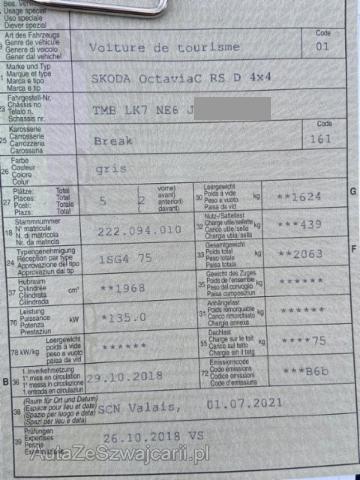 Bes. Verwendung
Usage spécial
Uso speciale
Diever spezial
Art des Fahrzeugs
Genre de véhicule
Genere di veicolo
Gener dal vehichel
Voiture de tourisme
Code
01
Marke und Typ
Marque et type
Marca e tipo
Marca e tip
SKODA OctaviaC RS D 4x4
23
Fahrgestell-Nr.
Châssis no
Telaio n.
Schassis nr.
TMB LK7 NE6 J
25
Karosserie
Carrosserie
Carrozzeria
Carossaria
Break
Code
161
26
Farbe
Couleur
Colore
Colur
gris
27
Plätze: Total
Places: Total
Posti: Totale
Plazs: Total
5
2
vorne)
avant)
anteriori)
davant)
30
Leergewicht
Poids à vide
Peso a vuoto
Paisa da vid
kg
**1624
G
18
Stammnummer
N° matricule
N. di matricola
Nr. da matricla
222.094.010
32
Nutz-/Sattellast
Charge utile/sellette
Carico utile/sella
Chargia útila/sella
kg
***439
24
Typengenehmigung
Réception par type
Approvazione del tipo
Approvaziun dal tip
1SG4 75
33
Gesamtgewicht
Poids total
Peso totale
Paisa totala
kg
**2063
F
37
Hubraum
Cylindrée
Cilindrata
Cilindrada
cm³
**1968
35
Gewicht des Zuges
Poids de l'ensemble
Peso del convoglio
Paisa cumposiziun
kg
76
Leistung
Puissance
Potenza
Prestaziun
kW
*135.0
31
Anhängelast
Poids remorquable
Carico rimorchiato
Chargia annexa
kg
78 kW/kg
Leergewicht
poids à vide
peso a vuoto
paisa da vid
******
55
Dachlast
Charge sur le toit
Carico sul tetto
Chargia sin il tetg
kg
****75
B
36
1. Inverkehrsetzung
1re mise en circulation
1a messa in circolazione
1. entrada en circulaziun
29.10.2018
72
Emissionscode
Code émissions
Codice emissioni
Code d'emissiuns
***B6b
38
(Raum für Ort und Datum)
(Espace pour lieu et date)
(Spazio per luogo e data)
(Spazi per lieu e data)
SCN Valais, 01.07.2021
39
Prüfungen
Expertises
Perizie
Examinaziuns
26.10.2018 VS
AutaZeSzwajcarii.pl